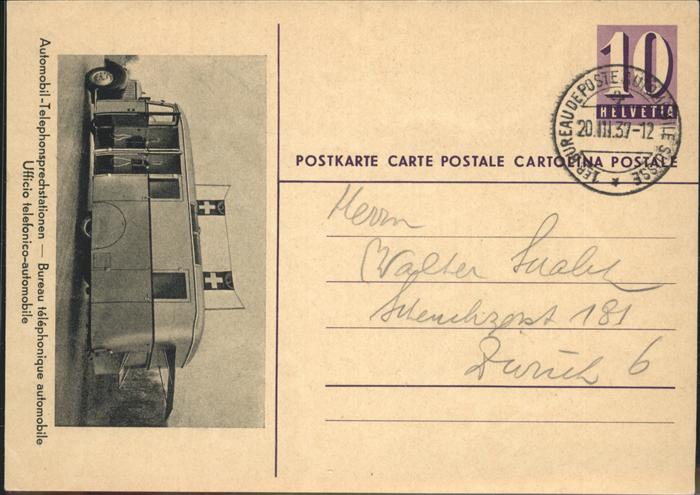 Automobil-Telephonsprechstationen — Bureau téléphonique automobile
Ufficio telefonico-automobile
10
HELVETIA
1ER BUREAU DE POSTE AUTOMOBILE SUISSE
20.III.37-12
POSTKARTE CARTE POSTALE CARTOLINA POSTALE
Herrn
Walter
181
Zürich 6